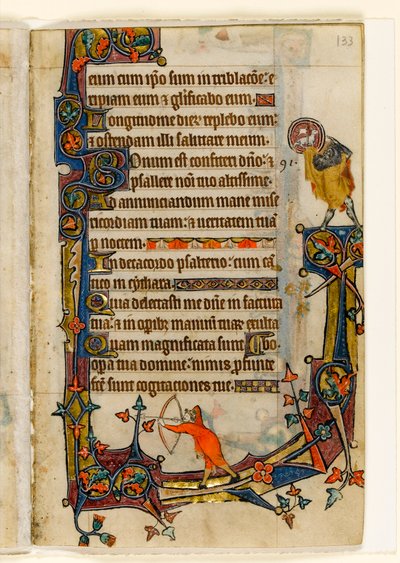 133
eum cum ip̄o sum in tribulac̄oē: e
ripiam eum & gl̄ificabo eum.
Longitudine dieꝝ replebo eum:
& ostendam illi salutare meum.
Bonum est confiteri dn̄o: &
psallere noī tuo altissime.
91.
Ad annunciandum mane mise
ricordiam tuam: & ueritatem tuā
ꝑ noctem.
In decacordo psalterio: cum cā
tico in cythara.
Quia delectasti me dn̄e in factura
tua: & in oꝑibꝫ manuum tuaꝝ exulta
Quam magnificata sunt
opera tua domine: nimis ꝓfunde
fc̄e sunt cogitaciones tue.